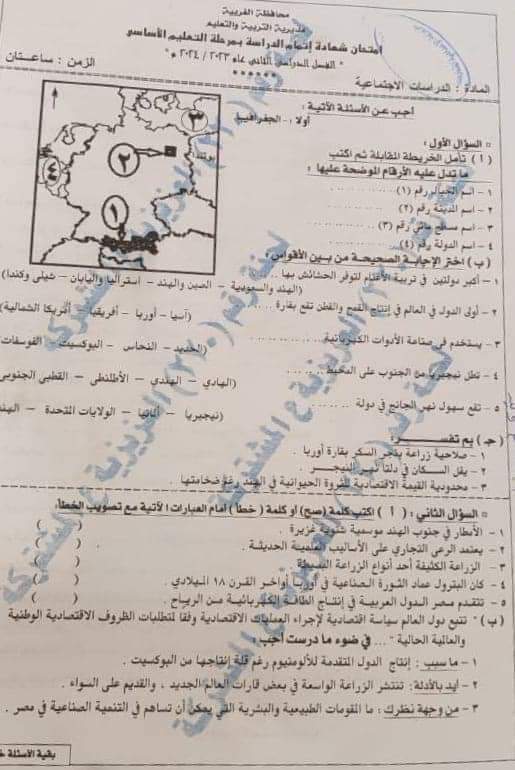 محافظة الغربية
مديرية التربية والتعليم
امتحان شهادة إتمام الدراسة بمرحلة التعليم الأساسي
" الفصل الدراسي الثاني عام ٢٠٢٣ / ٢٠٢٤ م "
المادة : الدراسات الاجتماعية
الزمن : ساعتان
أجب عن الأسئلة الآتية :
أولا :- الجغرافيا
السؤال الأول :
( أ ) تأمل الخريطة المقابلة ثم اكتب
ما تدل عليه الأرقام الموضحة عليها :
١ - اسم الجبال رقم (١) ..........
٢ - اسم المدينة رقم (٢) ..........
٣ - اسم مسطح مائي رقم (٣) ..........
٤ - اسم الدولة رقم (٤) ..........
٣
٢
بولندا
٤
١
(ب) اختر الإجابة الصحيحة من بين الأقواس :
١ - أكبر دولتين في تربية الأغنام لتوفر الحشائش بها ..........
(الهند والسعودية – الصين والهند – أستراليا واليابان – شيلي وكندا)
٢ - أولى الدول في العالم في إنتاج القمح والقطن تقع بقارة ..........
(آسيا – أوربا – أفريقيا – أمريكا الشمالية)
٣ - يستخدم في صناعة الأدوات الكهربائية ..........
(الحديد – النحاس – البوكسيت – الفوسفات
٤ - تطل نيجيريا من الجنوب على المحيط ..........
(الهادي – الهندي – الأطلنطي – القطبي الجنوبي
٥ - تقع سهول نهر الجانج في دولة ..........
(نيجيريا – ألمانيا – الولايات المتحدة – الهند
(جـ) بم تفسر :
١ - صلاحية زراعة بنجر السكر بقارة أوربا .
٢ - يقل السكان في دلتا نهر النيجر .
٣ - محدودية القيمة الاقتصادية للثروة الحيوانية في الهند رغم ضخامتها .
السؤال الثاني : ( أ ) اكتب كلمة (صح) أو كلمة ( خطأ ) أمام العبارات الآتية مع تصويب الخطأ:
١ - الأمطار في جنوب الهند موسمية شتوية غزيرة . ( )
٢ - يعتمد الرعى التجاري على الأساليب العلمية الحديثة . ( )
٣ - الزراعة الكثيفة أحد أنواع الزراعة البسيطة ( )
٤ - كان البترول عماد الثورة الصناعية في أوربا أواخر القرن ١٨ الميلادي . ( )
٥ - تتقدم مصر الدول العربية في إنتاج الطاقة الكهربائية من الرياح . ( )
(ب) " تتبع دول العالم سياسة اقتصادية لإجراء العمليات الاقتصادية وفقا لمتطلبات الظروف الاقتصادية الوطنية
والعالمية الحالية " ... في ضوء ما درست أجب :
١ - ما سبب : إنتاج الدول المتقدمة للألومنيوم رغم قلة إنتاجها من البوكسيت .
٢ - أيد بالأدلة: تنتشر الزراعة الواسعة في بعض قارات العالم الجديد ، والقديم على السواء .
٣ - من وجهة نظرك : ما المقومات الطبيعية والبشرية التي يمكن أن تساهم في التنمية الصناعية في مصر .
بقية الأسئلة
لجنة رقم (٢٢٠) العزيزية ع المشتركة